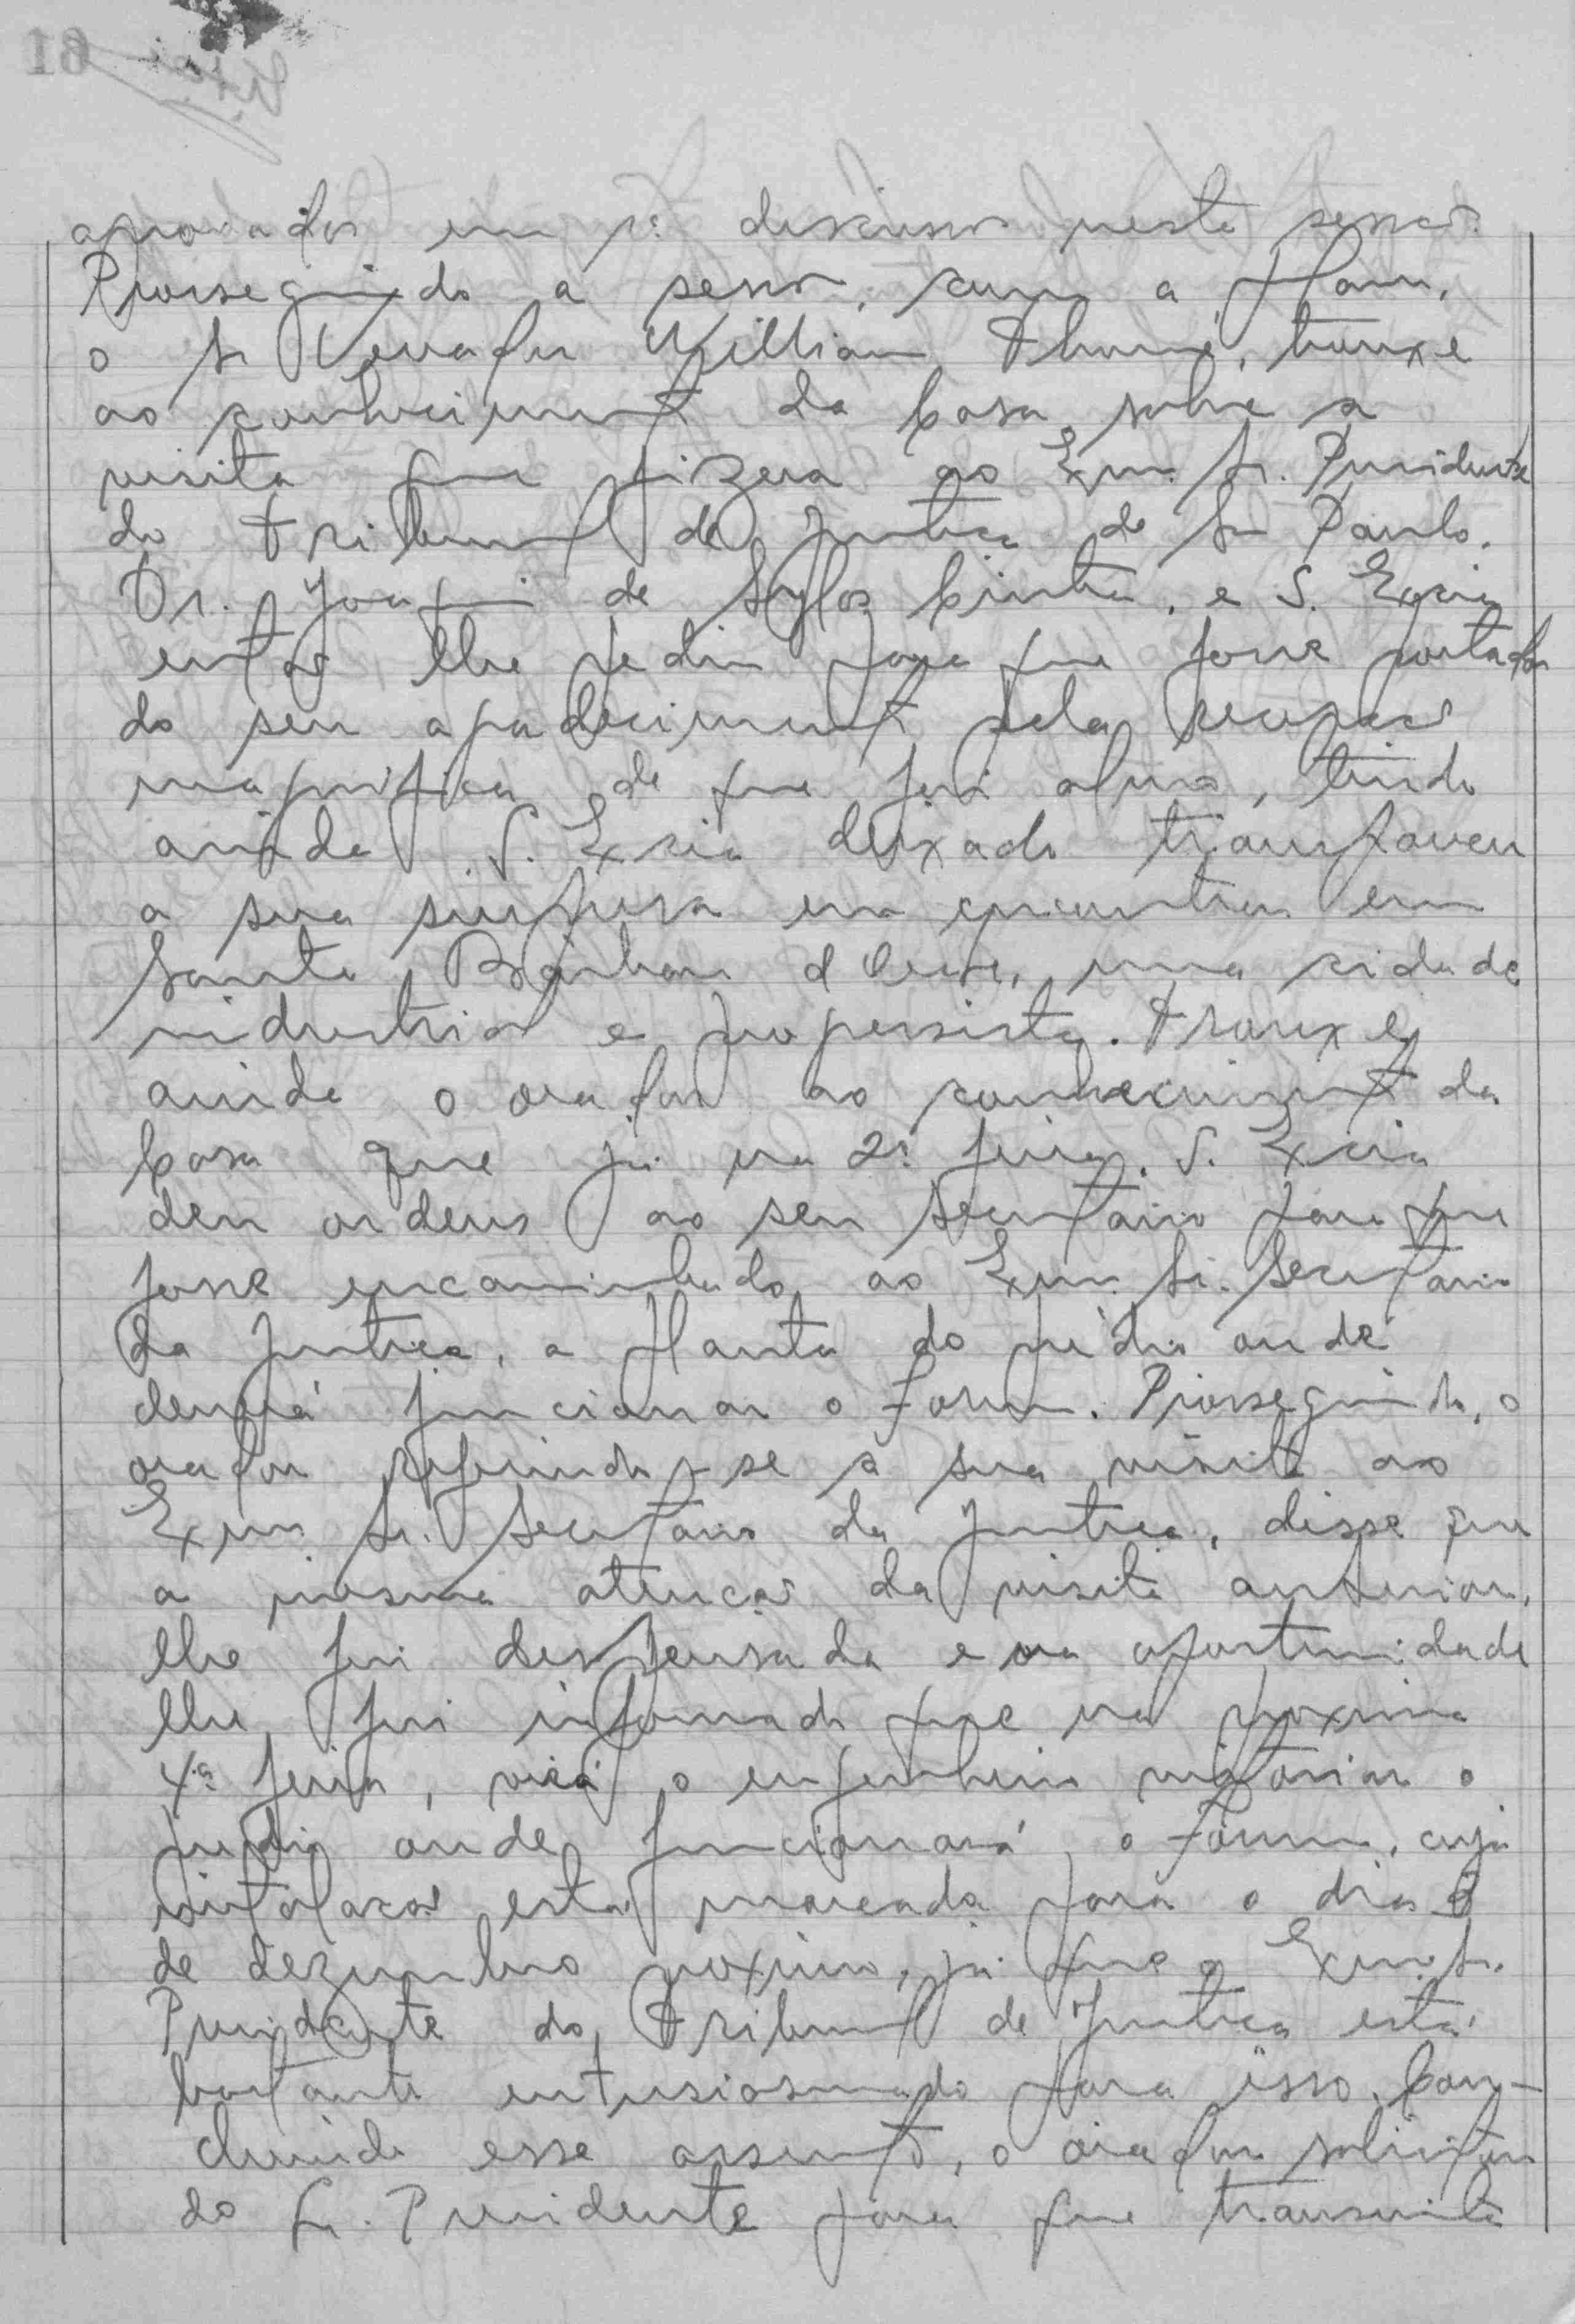 aprovados em 1ª discussão nesta sessão.
Prosseguindo a sessão, com a palavra,
o Sr Vereador Willian Thomé, trouxe
ao conhecimento da Casa, sobre a
visita que fizera ao Exmo. Sr. Presidente
do Tribunal de Justiça de São Paulo.
Dr. Joaquim de Sylos Cintra, e S. Excia
então lhe pediu para que fosse portador
do seu agradecimento pela recepção
magnifica de que foi alvo, tendo
ainda S. Excia deixado transparecer
a sua surpresa em encontrar em
Santa Bárbara d'Oeste, uma cidade
industrial e progressista. Trouxe
ainda o orador ao conhecimento da
Casa que já na 2ª feira, S. Excia
deu ordens ao seu secretario para que
fosse encaminhado ao Exmo. Sr. Secretario
da Justiça, a planta do prédio onde
deverá funcionar o Forum. Prosseguindo, o
orador referindo-se a sua visita ao
Exmo Sr. Secretario da Justiça, disse que
a mesma atenção da visita anterior,
lhe foi dispensada e na oportunidade
lhe foi informado que na proxima
4ª feira, virá o engenheiro vistoriar o
predio onde funcionará o Fórum, cuja
instalação está marcada para o dia 8
de dezembro proximo, já que o Exmo Sr.
Presidente do Tribunal de Justiça está
bastante entusiasmado para isso. Con-
cluindo esse assunto, o orador solicitou
do Sr. Presidente para que transmita